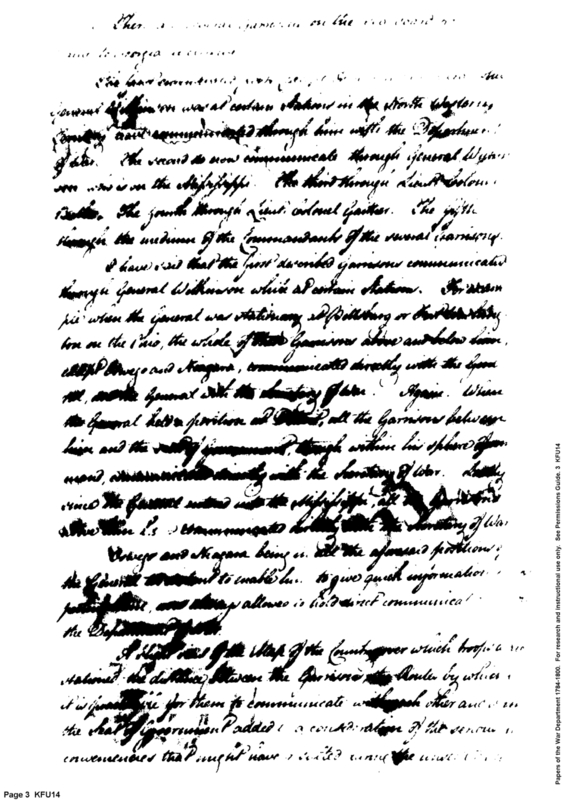 There are several Garrisons on the sea coast
and Georgia
The
General Wilkinson was at certain stations in the North Western
Country and communicated through him with the Department
of War. The second do now communicate through General Wilkin
son who is on the Mississippi. The third through Lieut Colonel
Butler. The fourth through Lieut. Colonel Gaither. The fifth
through the medium of the Commandants of the several Garrisons.
I have said that the first described Garrisons communicated
through General Wilkinson while at certain stations. For exam
ple when the General was stationary at Pittsburg or
on the Ohio, the whole of these Garrisons above and below him,
except Oswego and Niagara, communicated directly with the Gene
ral, and the General with the Secretary of War. Again. When
the General held a position at Detroit, all the Garrisons between
him and the seat of government, though within his sphere of com
mand, communicated directly with the Secretary of War. Lastly
since the General entered into the Mississippi, all the Garrisons
communicated directly with the Secretary of War
Oswego and Niagara being in all the aforesaid positions of
the General to enable him to give quick information
was always allowed to hold direct communicat
the Department
A slight view of the Map of the Country over which troops are
stationed the distance between the Garrisons the Routes by which
it is practicable for them to communicate with each other and
the Seat of Government added to a consideration of the serious in
conveniences that might have resulted
Page 3 KFU14
Papers of the War Department 1784-1800. For research and instructional use only. See Permissions Guide. 3 KFU14